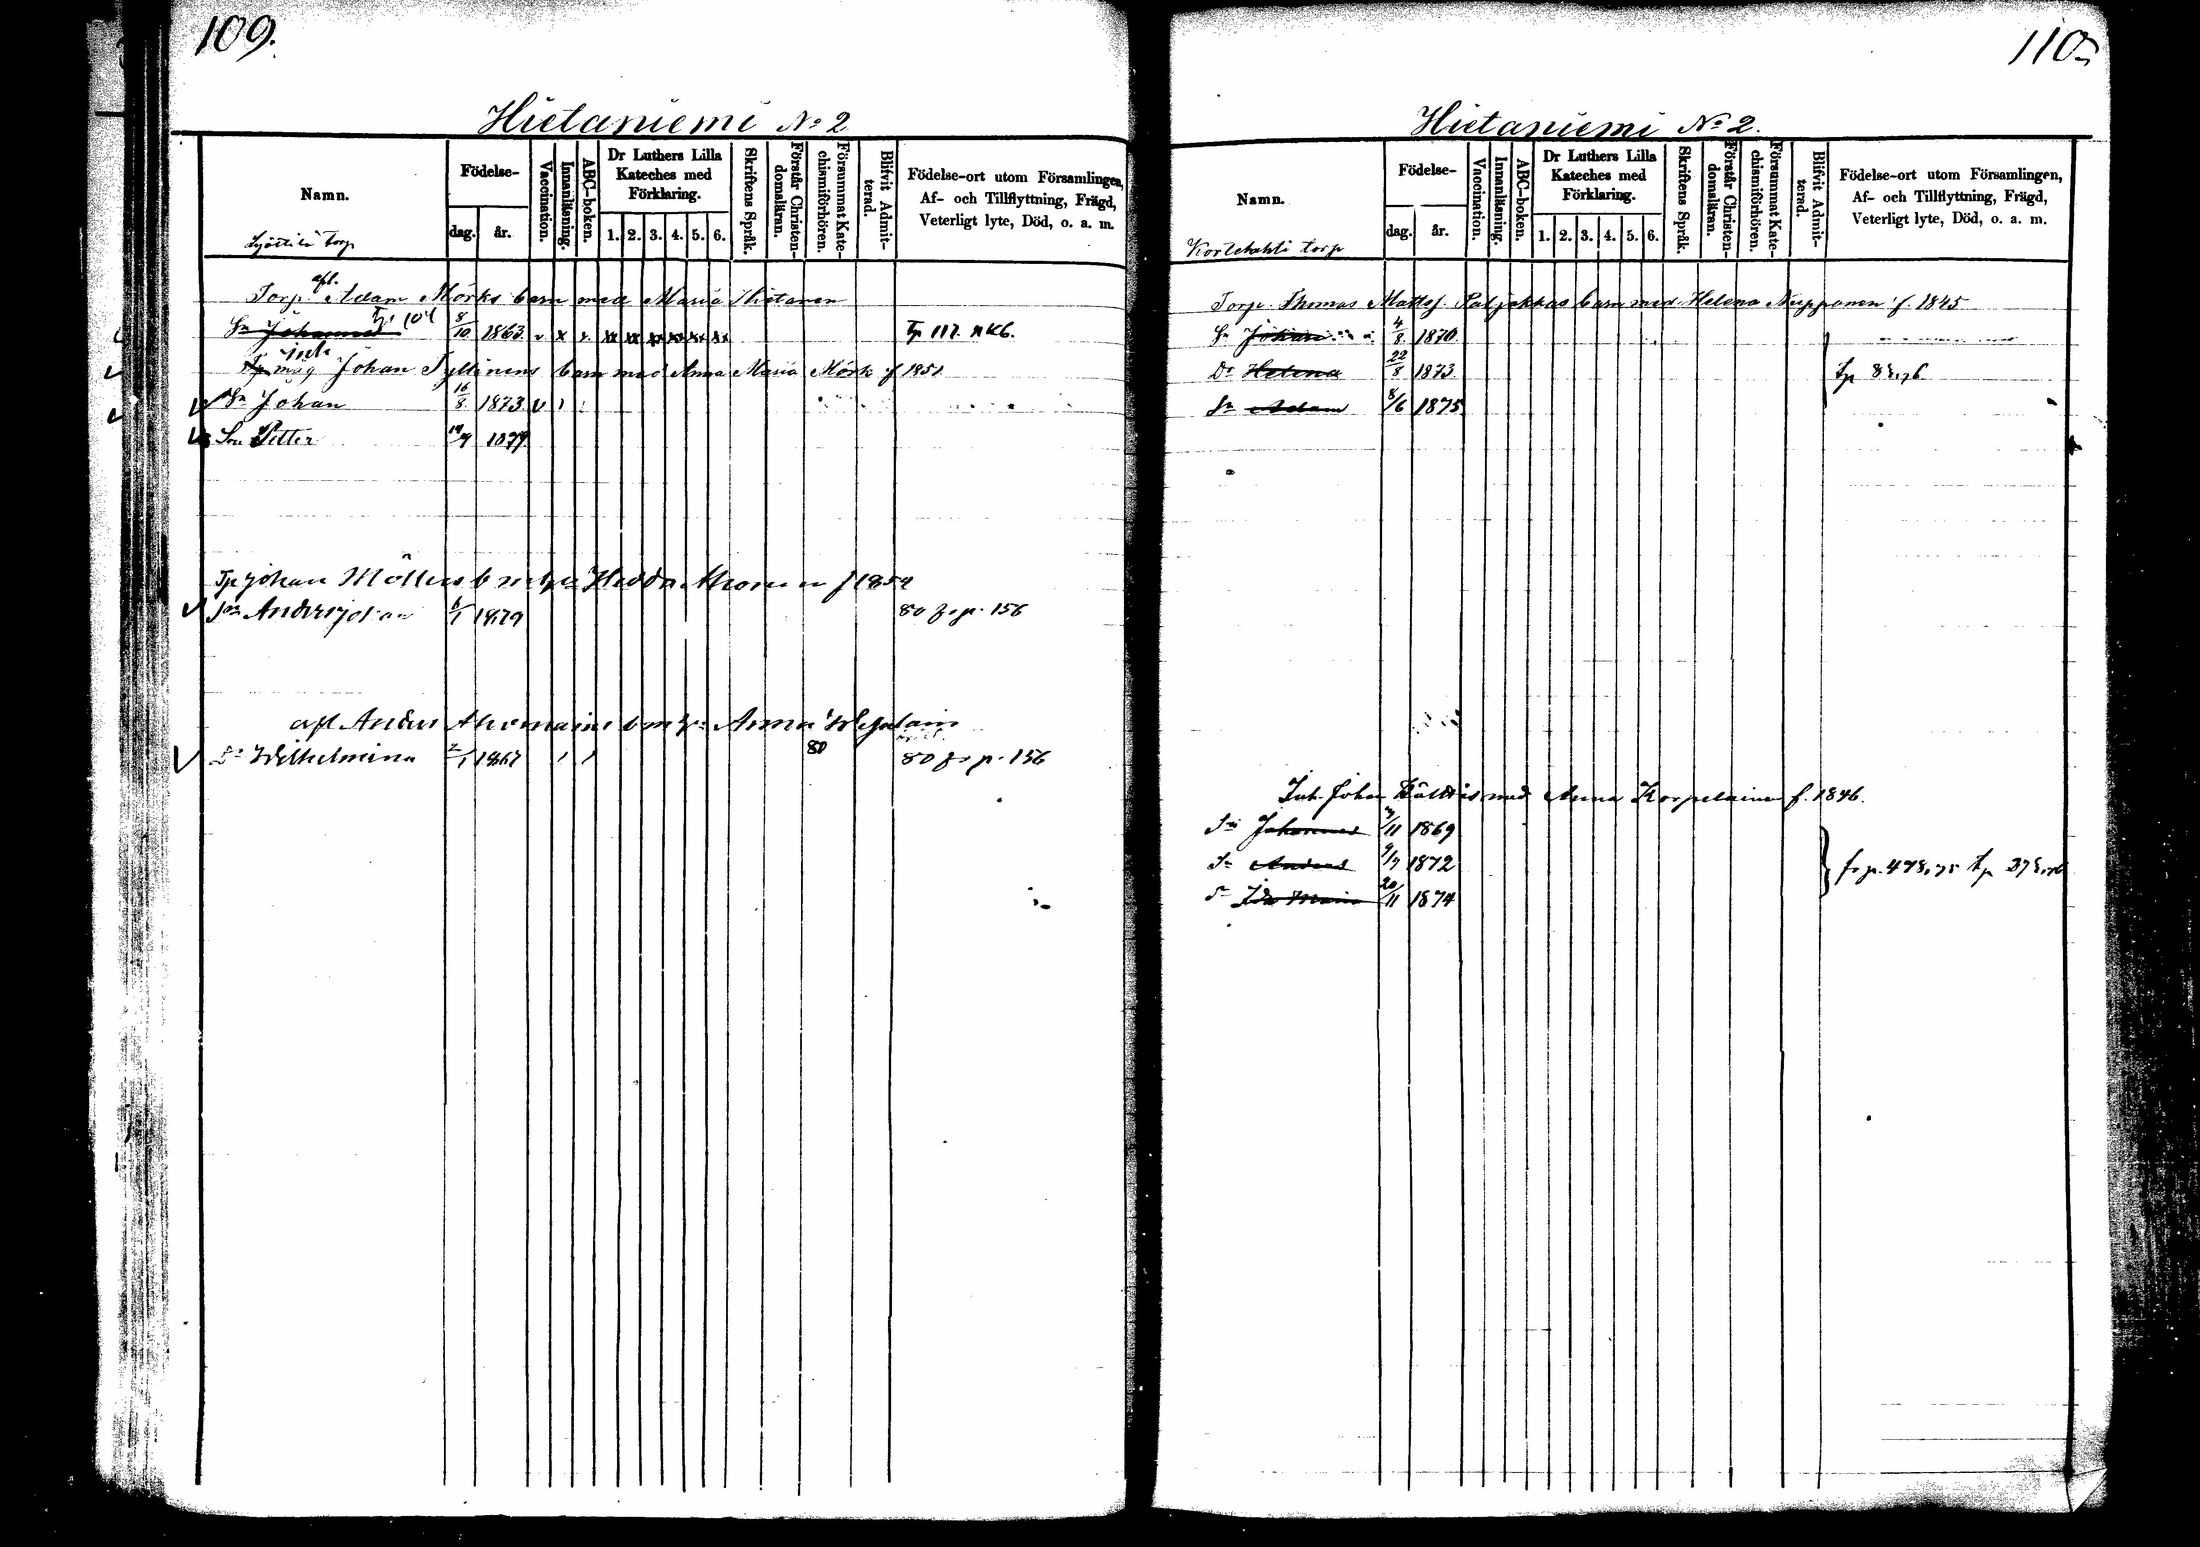 109.
Hietaniemi No 2
Namn.
Födelse-
dag.
år.
Vaccination.
Innanläsning.
ABC-boken.
Dr Luthers Lilla Kateches med Förklaring.
1. 2. 3. 4. 5. 6.
Skriftens Språk.
Förstår Christendomsläran.
Försummat Katechismiförhören.
Blifvit Admitterad.
Födelse-ort utom Församlingen,
Af- och Tillflyttning, Frägd,
Veterligt lyte, Död, o. a. m.
torp
afl.
Torp. Adam Mörks barn med Maria Hietanen
Sn Johannes Tp 104 8/10 1863 v x x xx xx xx xx xx xx tp 117. nKb.
inh
Tp måg Johan Tyllinens barn med Anna Maria Mörk f 1851
Sn Johan 16/8 1873 v
Son Petter 1879
Tp Johan Hedda Ahonen f 1854
Son Anders Johan 6/1 1879 80 fr p. 156
afl Anders Anna
Dr Wilhelmina 2/1 1867 80 80 fr p. 156
110
Hietaniemi No 2.
Namn.
Födelse-
dag.
år.
Vaccination.
Innanläsning.
ABC-boken.
Dr Luthers Lilla Kateches med Förklaring.
1. 2. 3. 4. 5. 6.
Skriftens Språk.
Förstår Christendomsläran.
Försummat Katechismiförhören.
Blifvit Admitterad.
Födelse-ort utom Församlingen,
Af- och Tillflyttning, Frägd,
Veterligt lyte, Död, o. a. m.
Kortelahti torp
Torp. Thomas Mattsf. Paljakkas barn med Helena Nupponen f. 1845
Sn Johan 4/8 1870
Dr Helena 22/8 1873 tp
Sn Adam 8/6 1875
Inh. Johan med Anna Korpelainen f. 1846.
Sn Johannes /11 1869
Sn Anders 1872 fr p. 478,75 tp
Ida Maria 20/11 1874